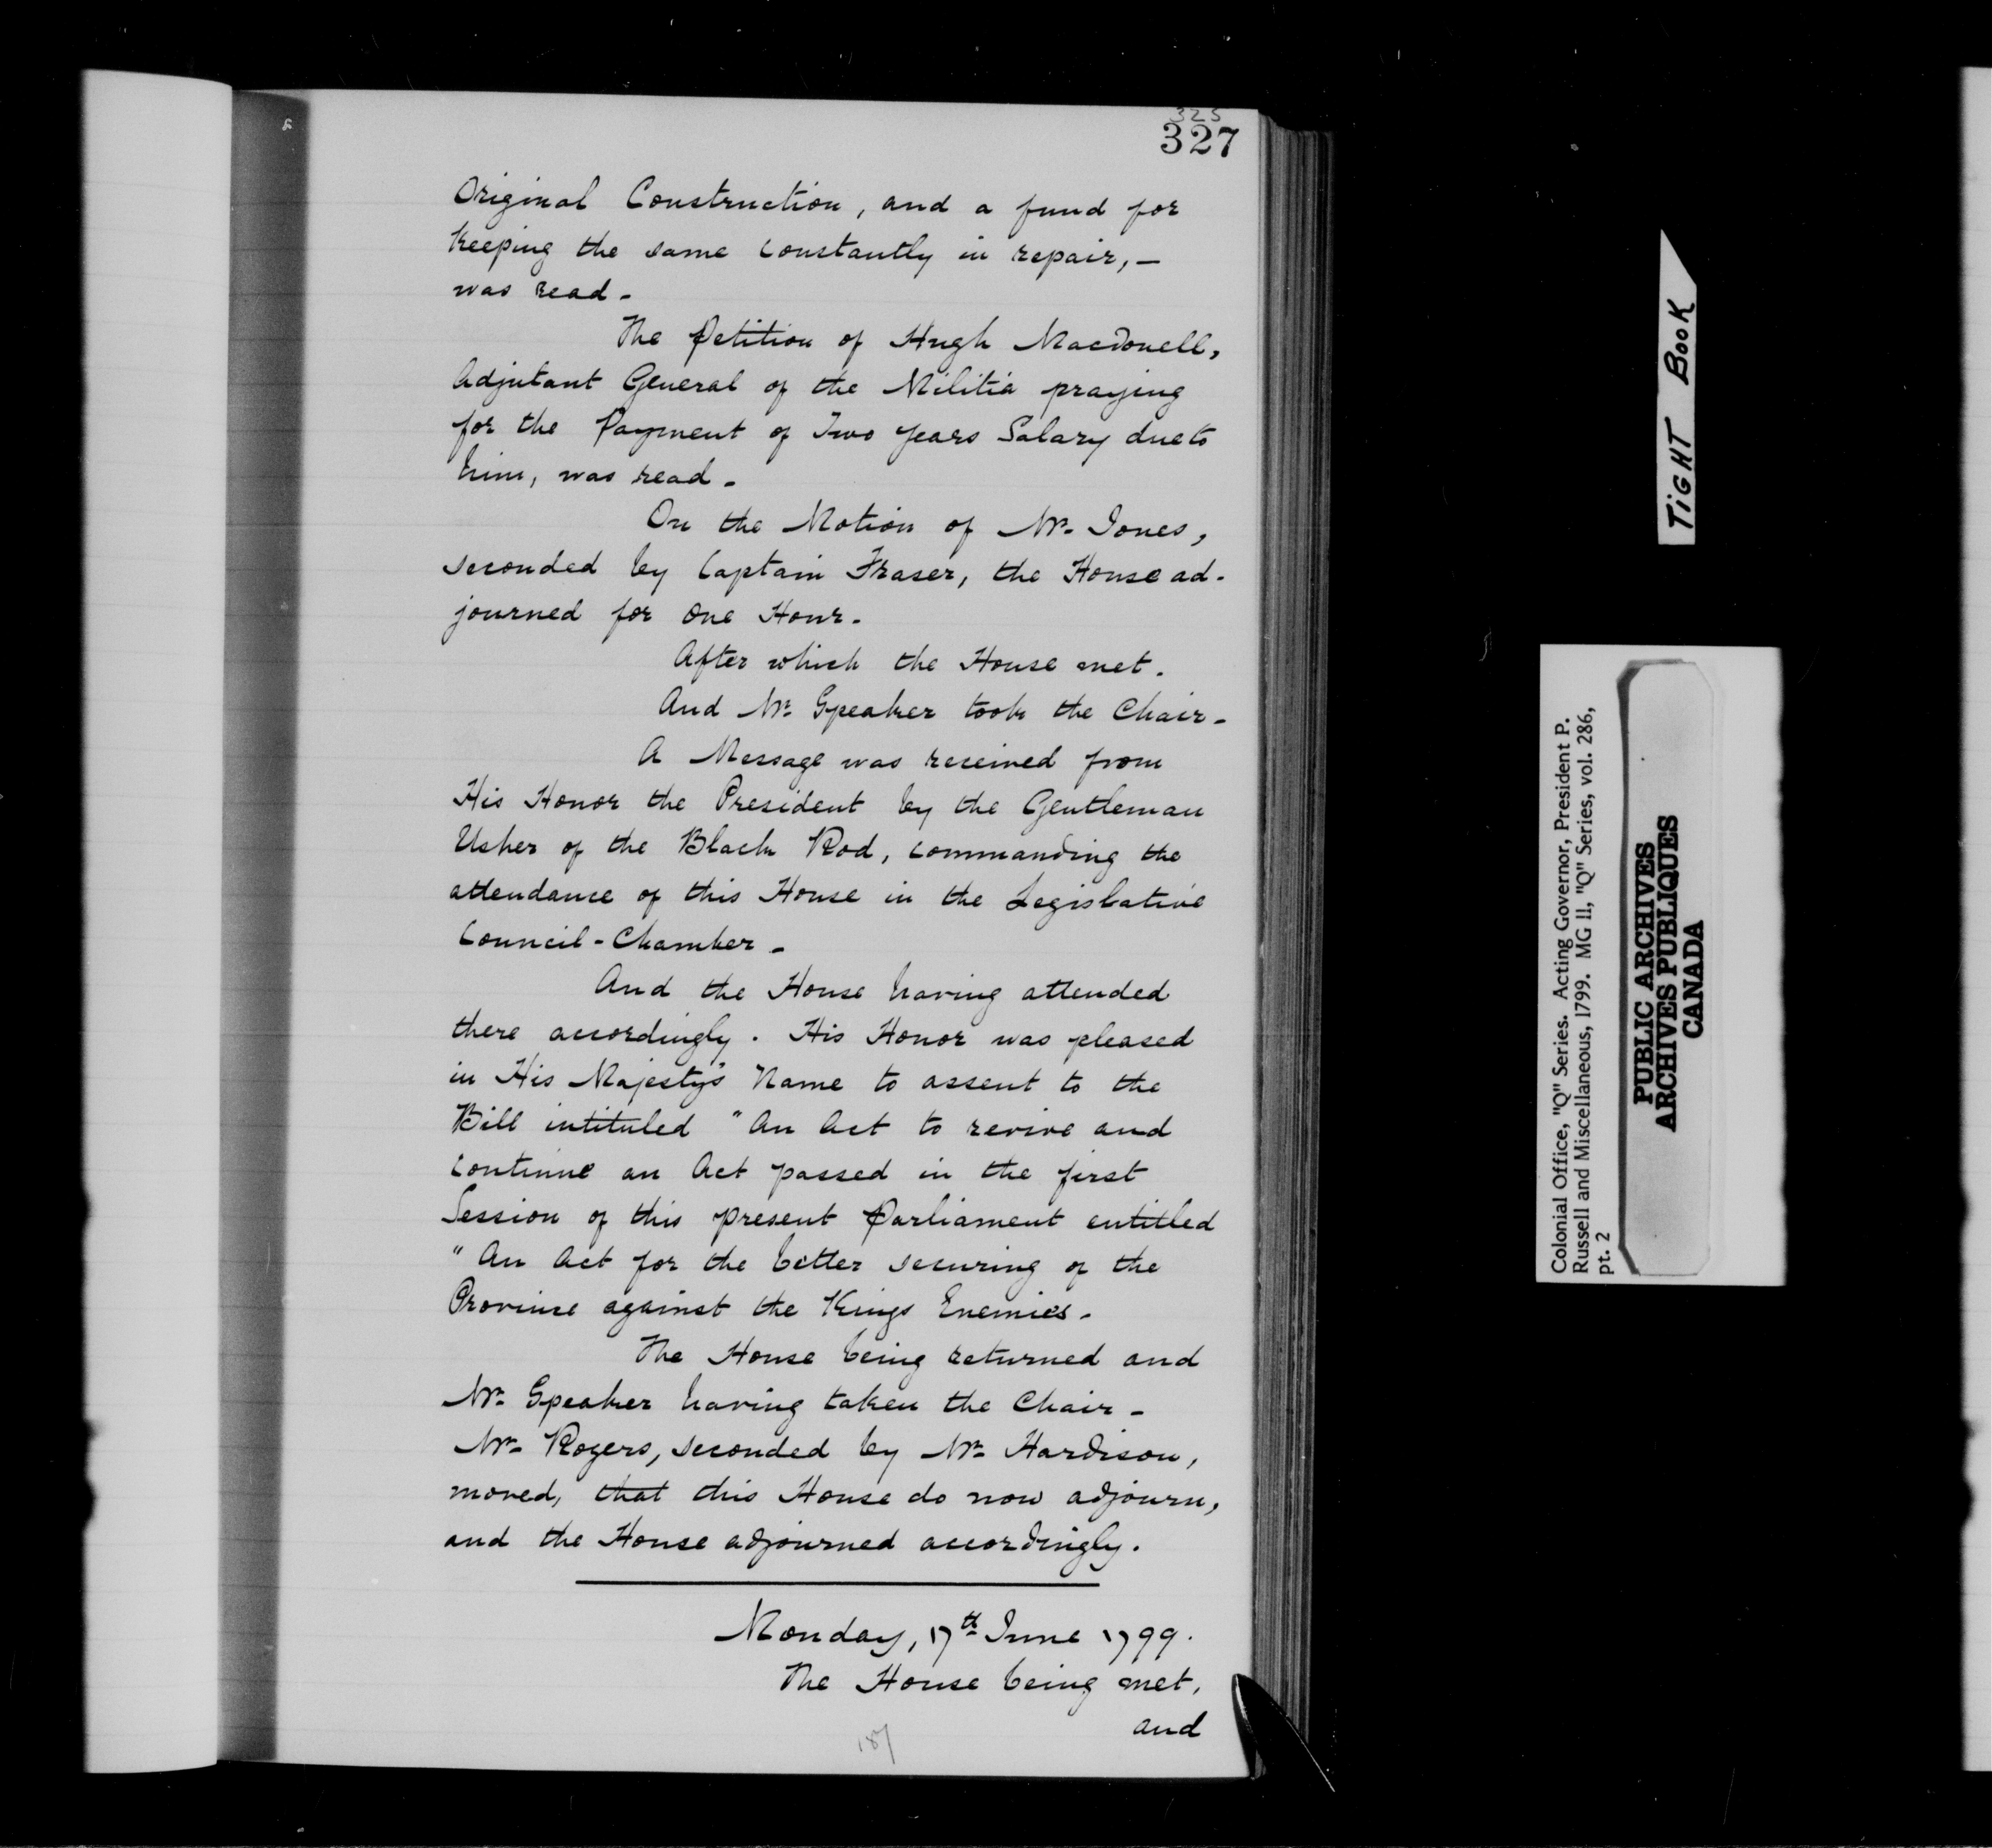 325
327
Original Construction, and a fund for
Keeping the same constantly in repair, —
was read -
The Petition of Hugh Macdonell,
Adjutant General of the Militia praying
for the Payment of Two Years Salary due to
him, was read -
On the Motion of Mr. Jones,
seconded by Captain Fraser, the House ad-
journed for one Hour.
After which the House met.
And Mr. Speaker took the Chair -
A Message was received from
His Honor the President by the Gentleman
Usher of the Black Rod, commanding the
attendance of this House in the Legislative
Council-Chamber -
And the House having attended
there accordingly. His Honor was pleased
in His Majesty's Name to assent to the
Bill intituled "An Act to revive and
continue an Act passed in the first
Session of this present Parliament entitled
"An Act for the better securing of the
Province against the Kings Enemies -
The House being returned and
Mr. Speaker having taken the Chair -
Mr. Rogers, seconded by Mr. Hardison,
moved, that this House do now adjourn,
and the House adjourned accordingly.
Monday, 17th June 1799.
The House being met,
and
187
TIGHT BOOK
Colonial Office, "Q" Series. Acting Governor, President P.
Russell and Miscellaneous, 1799. MG 11, "Q" Series, vol. 286,
pt. 2
PUBLIC ARCHIVES
ARCHIVES PUBLIQUES
CANADA